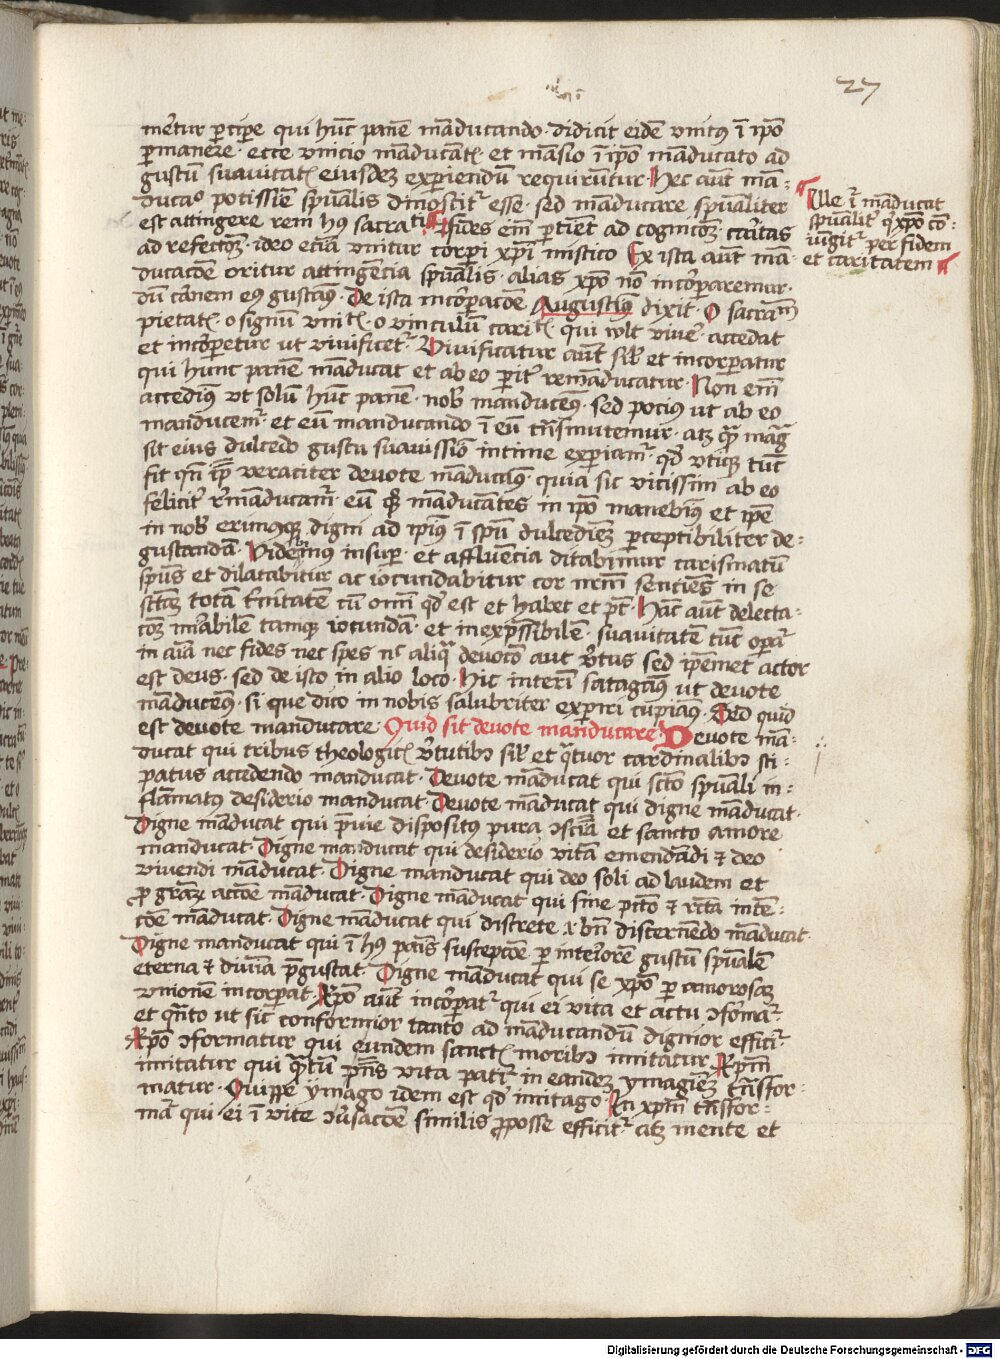 27
mẽtur ꝑcipe qui hũc panẽ mãducando didicit eidẽ vnitus ĩ ip̃o
ꝑmanere · ecce vnicio mãducãt̃ · et mãsio ĩ ip̃o mãducato ad
gustũ suauitat̃ eiusdeȝ experiendũ requirũtur · Hec aũt mã-
ducac̃o potissiẽ sp̃ualis dinoscit᷑ esse · sed mãducare sp̃ualiter
est attingere rem hꝰ sacrati ꝑtiẽt ad cognic̃oȝ caritas
ad refectõȝ · ideo etiã vnitur corpori xp̃i mistico Ex ista aũt mã-
ducac̃oe oritur attingẽcia sp̃ualis · alias xp̃o nõ incorparemur ·
dũ carnem eꝰ gustãꝰ · De ista incorporac̃oe Augustinꝰ dixit · O sacramm
pietat̃ · o signũ vnitt̃ · o vinculũ caritt̃ · qui wlt viuẽ accedat
et incorpetur ut viuificet᷑ · Viuificatur aũt sil̃ et incorporatur
qui hunc panem mãducat et ab eo ꝑit᷑ remãducatur · Non em̃
accedimꝰ vt solũ hũc panẽ nobis manducemꝰ · sed pocius ut ab eo
manducem᷑ · et eũ manducando ĩ eũ trãsmutemur · atȝ quã mag̃
sit eius dulcedo gustu suauissiõ intime experiam᷑ · qd̃ vtiqȝ tũc
fit qñ ip̃m veraciter deuote mãducamꝰ · quia sic vicissim ab eo
felicit᷑ r̃mãducam᷑ · eũ qȝ mãducãtes in ip̃o manebimꝰ et ip̃e
in nob̃ erimqȝ digni ad ip̃ius ĩ sp̃u dulcediẽȝ perceptibiliter de-
gustandã · Videbimus insuper · et affluencia ditabimur carismatũ
sp̃us et dilatabitur ac iocundabitur cor nr̃m senciẽs in se
sct̃aȝ totã trinitatẽ cũ om̃i qd̃ est et habet et pt̃ · Hãc aũt delecta-
cõȝ mirabilẽ tamqȝ iocundã · et inexpressibilẽ · suauitatẽ tũc oꝑat᷑
in aĩa nec fides nec spes nc̃ aliqua deuoc̃o aut v̾tus sed ip̃emet actor
est deus · sed de isto in alio loco · Hic interi satagamꝰ ut deuote
mãducemꝰ · si que dico in nobis salubriter exp̃iri cupimꝰ · Sed quid
est deuote manducare · Quid sit deuote manducare Deuote mã-
ducat qui tribus theologic̃ v̾tutibꝰ sil̃ et q̃tuor cardinalibꝰ sti-
patus accedendo manducat · Deuote mãducat qui sct̃o sp̃uali in-
flãmatus desiderio manducat · Deuote mãducat qui digne mãducat
Digne mãducat qui p̃uie dispositus pura ↄsciã et sancto amore
manducat · Digne manducat qui desiderio vitã emendãdi ⁊ deo
viuendi mãducat · Digne manducat qui deo soli ad laudem et
ꝓ graȝ actõe mãducat · Digne mãducat qui sine pcc̃o ⁊ r̃cta inten-
cõe mãducat · Digne mãducat qui discrete ⁊ bñ discernẽdo mãducat
Digne manducat qui ĩ hꝰ panis suscepcõe ꝑ interiorẽ gustũ sp̃ualẽ
eterna ⁊ diuĩa p̃gustat · Digne mãducat qui se xp̃o ꝑ amorosaȝ
vnionẽ incorporat · Xp̃o aũt incorporat᷑ qui ei vita et actu ↄformat᷑
et qñto ut sic conformior tanto ad mãducandũ dignior effici᷑
Xp̃o ↄformatur qui eiusdem sanct̃ moribꝰ imitatur Xp̃m
imitatur qui q̃ntũ p̃ns vita patit᷑ in eandeȝ ymagiẽȝ trãsfor-
matur · Quippe ymago idem est qd̃ imitago · In xp̃m trãsfor-
mat᷑ qui ei ĩ vite ↄũsac̃oe similis ꝓposse efficit᷑ atȝ mente et
Ille ĩ mãducat
sp̃ualit᷑ q̃ xp̃o cõ-
iũgit᷑ per fidem
et caritatem
Digitalisierung gefördert durch die Deutsche Forschungsgemeinschaft - DFG